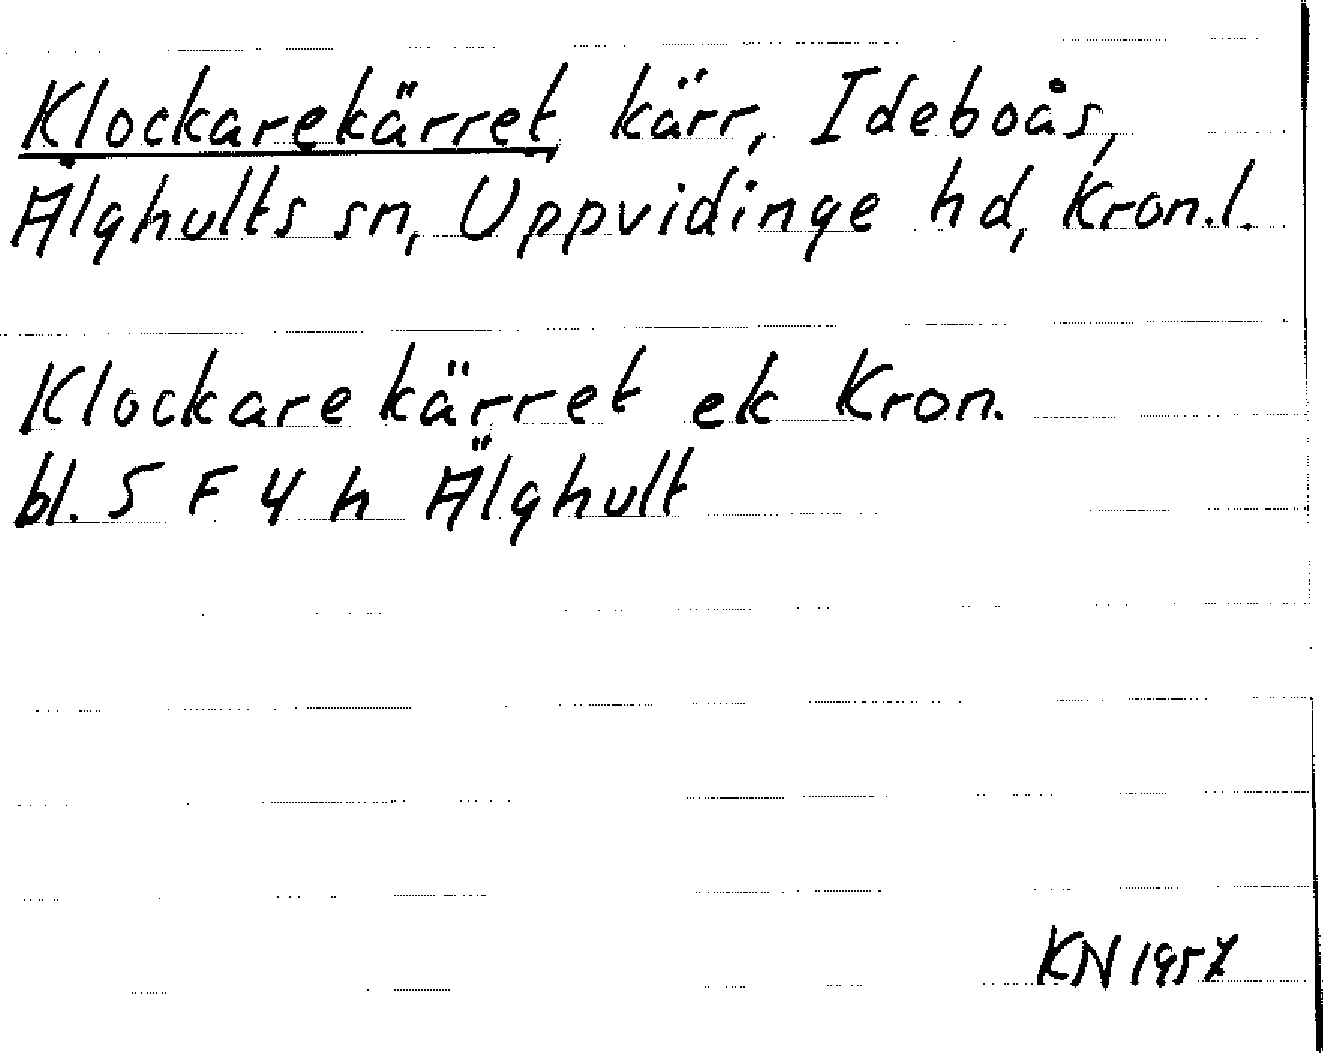 Klockarekärret, kärr, Ideboås,
Älghults sn, Uppvidinge hd, Kron.l.
Klockarekärret ek Kron.
bl. 5 F 4 h Älghult
KN 1957